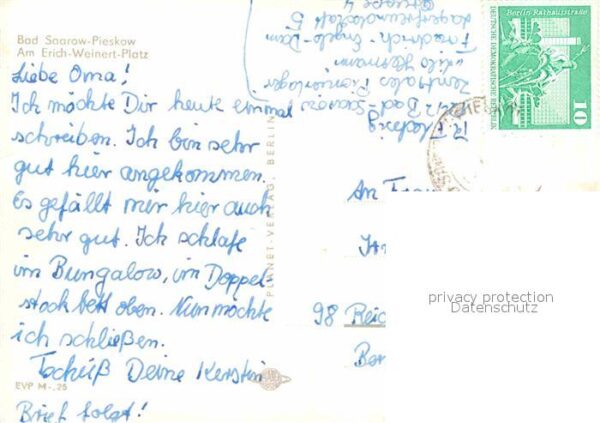 Bad Saarow-Pieskow
Am Erich-Weinert-Platz
Liebe Oma!
Ich möchte Dir heute einmal
schreiben. Ich bin sehr
gut hier angekommen.
Es gefällt mir hier auch
sehr gut. Ich schlafe
im Bungalow, im Doppel-
stockbett oben. Nun möchte
ich schließen.
Tschüß Deine Kerstin
EVP M -.25
Brief folgt!
PLANET-VERLAG, BERLIN
1242 Bad-Saarow
Zentrales Pionierlager
Friedrich-Engels-Damm
Lagerfreundschaft 5
Gruppe 4
Berlin Rathausstraße
DEUTSCHE DEMOKRATISCHE REPUBLIK
10
An
98 Reic
privacy protection
Datenschutz